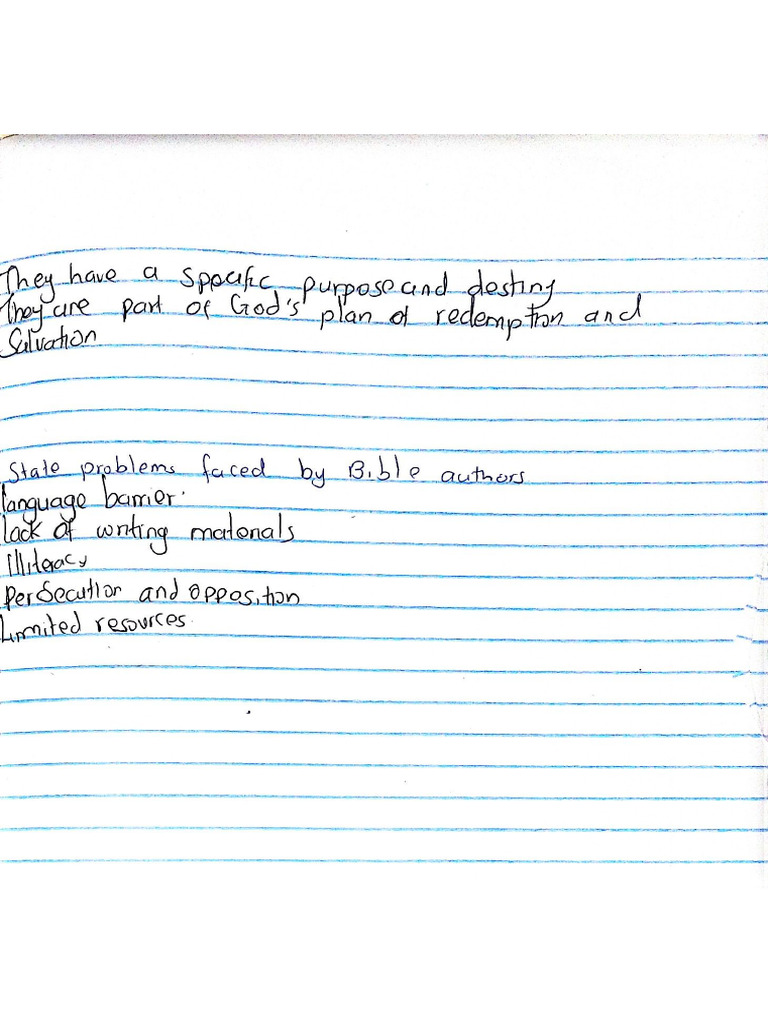 They have a specific purpose and destiny
They are part of God's plan of redemption and
Salvation
State problems faced by Bible authors
language barrier.
lack of writing materials
illiteracy
persecution and opposition
Limited resources